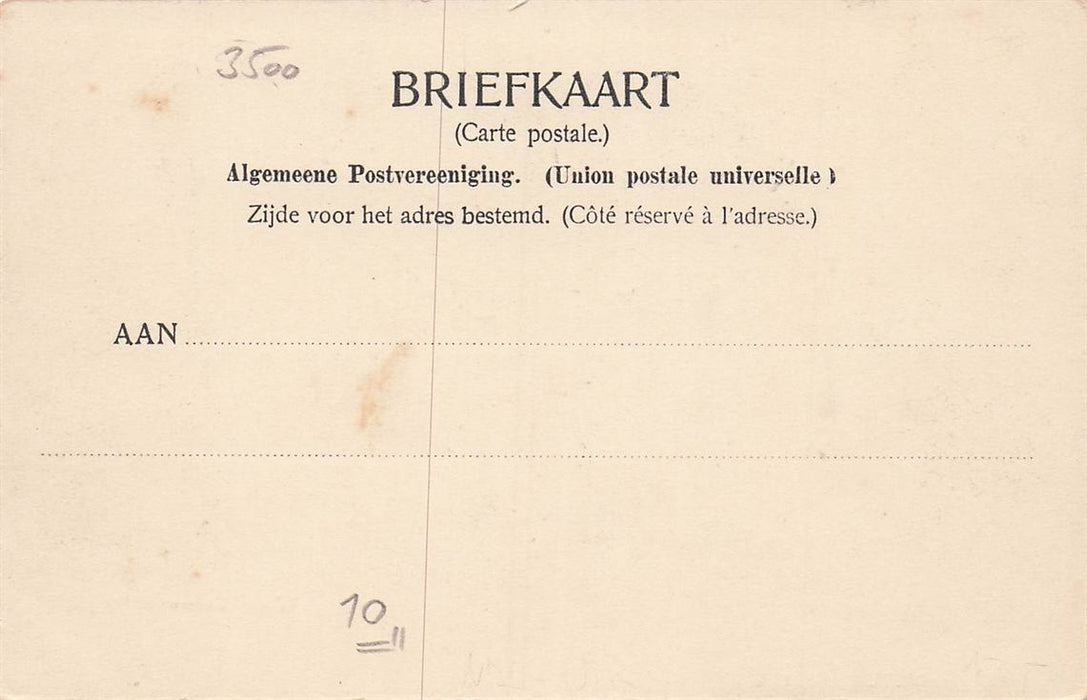 3500
BRIEFKAART
(Carte postale.)
Algemeene Postvereeniging. (Union postale universelle )
Zijde voor het adres bestemd. (Côté réservé à l'adresse.)
AAN
10